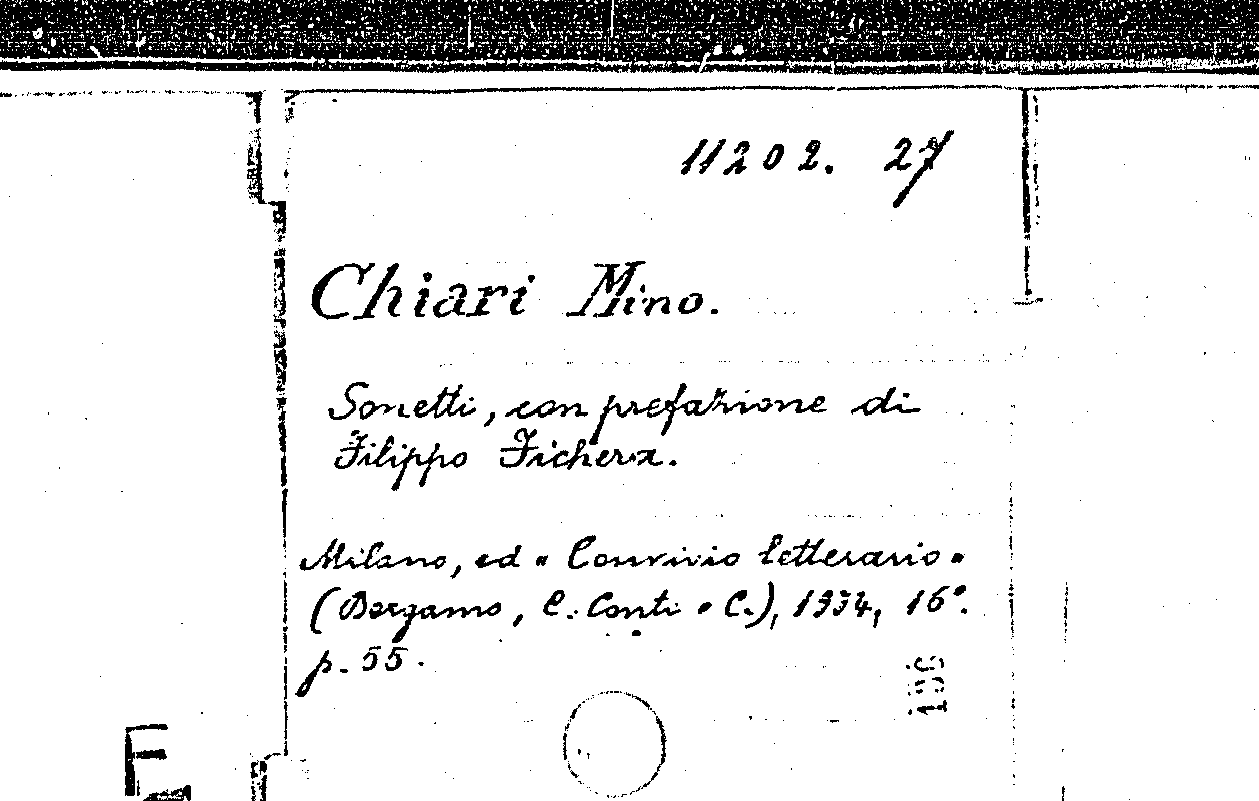 11202. 27
Chiari Mino.
Sonetti, con prefazione di
Filippo Fichera.
Milano, ed "Convivio letterario"
(Bergamo, C. Conti e C.), 1934, 16°.
p. 55.